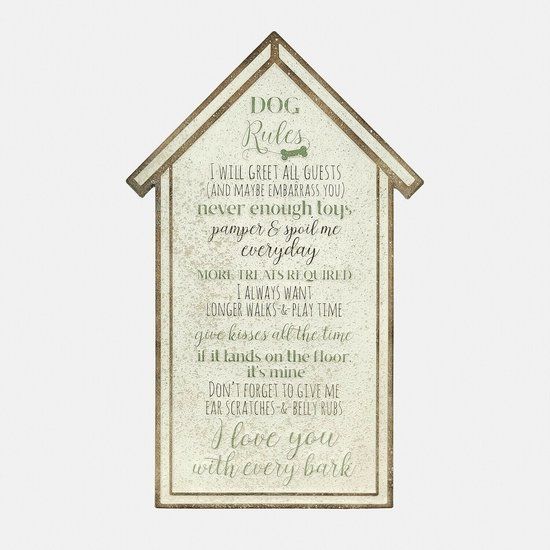 DOG
Rules
I WILL GREET ALL GUESTS
(AND MAYBE EMBARRASS YOU)
never enough toys
pamper & spoil me
everyday
MORE TREATS REQUIRED
I ALWAYS WANT
LONGER WALKS & PLAY TIME
give kisses all the time
if it lands on the floor,
it's mine
DON'T FORGET TO GIVE ME
EAR SCRATCHES & BELLY RUBS
I love you
with every bark